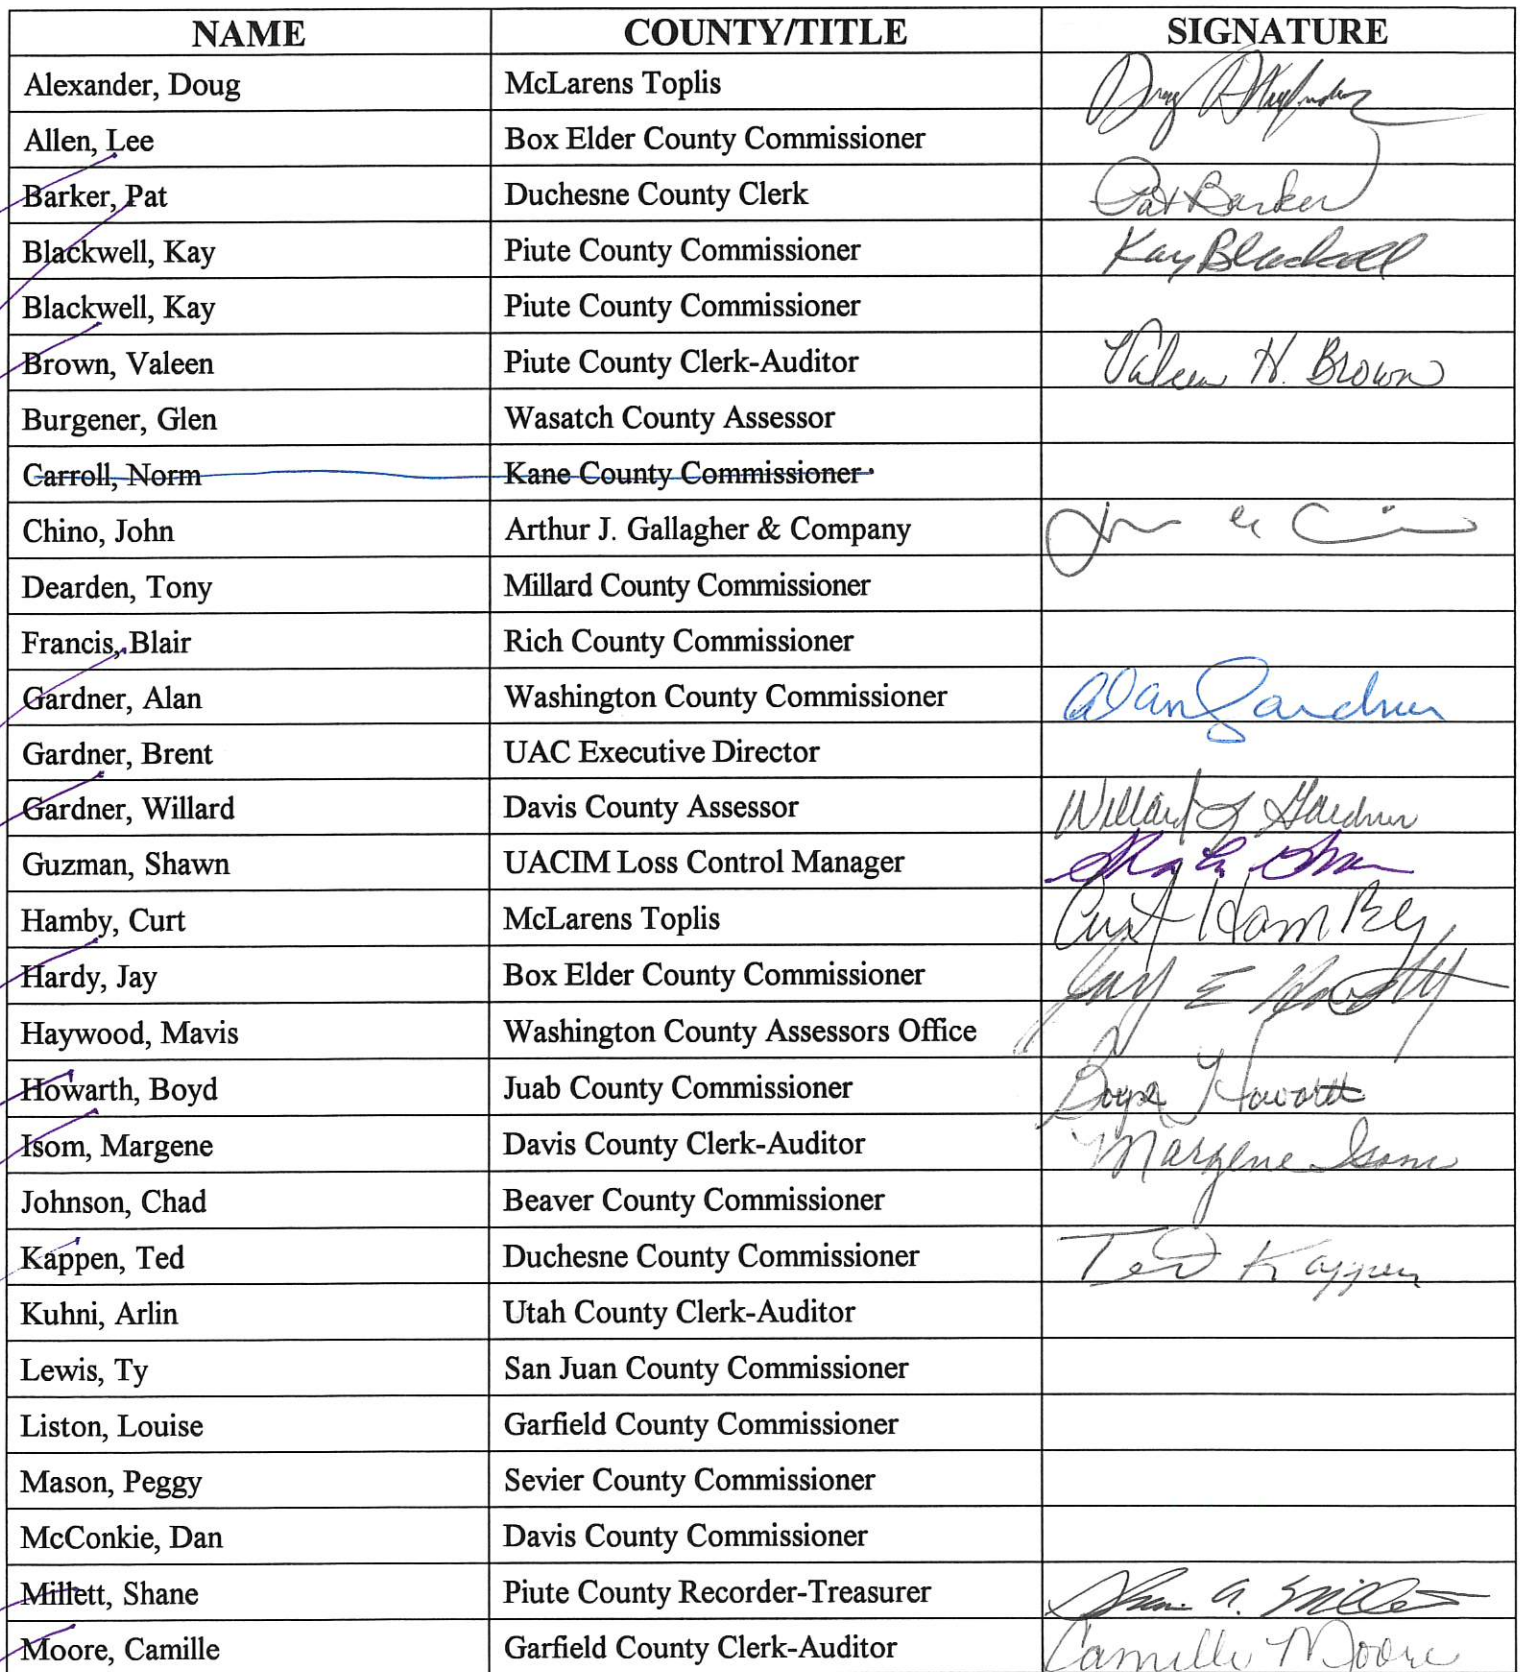 NAME COUNTY/TITLE SIGNATURE
Alexander, Doug McLarens Toplis Doug
Allen, Lee Box Elder County Commissioner
Barker, Pat Duchesne County Clerk Pat Barker
Blackwell, Kay Piute County Commissioner Kay Blackwell
Blackwell, Kay Piute County Commissioner
Brown, Valeen Piute County Clerk-Auditor Valeen H. Brown
Burgener, Glen Wasatch County Assessor
Carroll, Norm Kane County Commissioner
Chino, John Arthur J. Gallagher & Company
Dearden, Tony Millard County Commissioner
Francis, Blair Rich County Commissioner
Gardner, Alan Washington County Commissioner Alan Gardner
Gardner, Brent UAC Executive Director
Gardner, Willard Davis County Assessor Willard Gardner
Guzman, Shawn UACIM Loss Control Manager
Hamby, Curt McLarens Toplis Curt Hamby
Hardy, Jay Box Elder County Commissioner Jay E Hardy
Haywood, Mavis Washington County Assessors Office
Howarth, Boyd Juab County Commissioner Boyd Howarth
Isom, Margene Davis County Clerk-Auditor Margene Isom
Johnson, Chad Beaver County Commissioner
Kappen, Ted Duchesne County Commissioner Ted Kappen
Kuhni, Arlin Utah County Clerk-Auditor
Lewis, Ty San Juan County Commissioner
Liston, Louise Garfield County Commissioner
Mason, Peggy Sevier County Commissioner
McConkie, Dan Davis County Commissioner
Millett, Shane Piute County Recorder-Treasurer Shane A. Millett
Moore, Camille Garfield County Clerk-Auditor Camille Moore